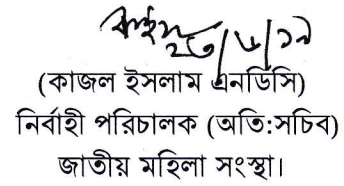 ২৩/৬/১৯
(কাজল ইসলাম এনডিসি)
নির্বাহী পরিচালক (অতি:সচিব)
জাতীয় মহিলা সংস্থা।